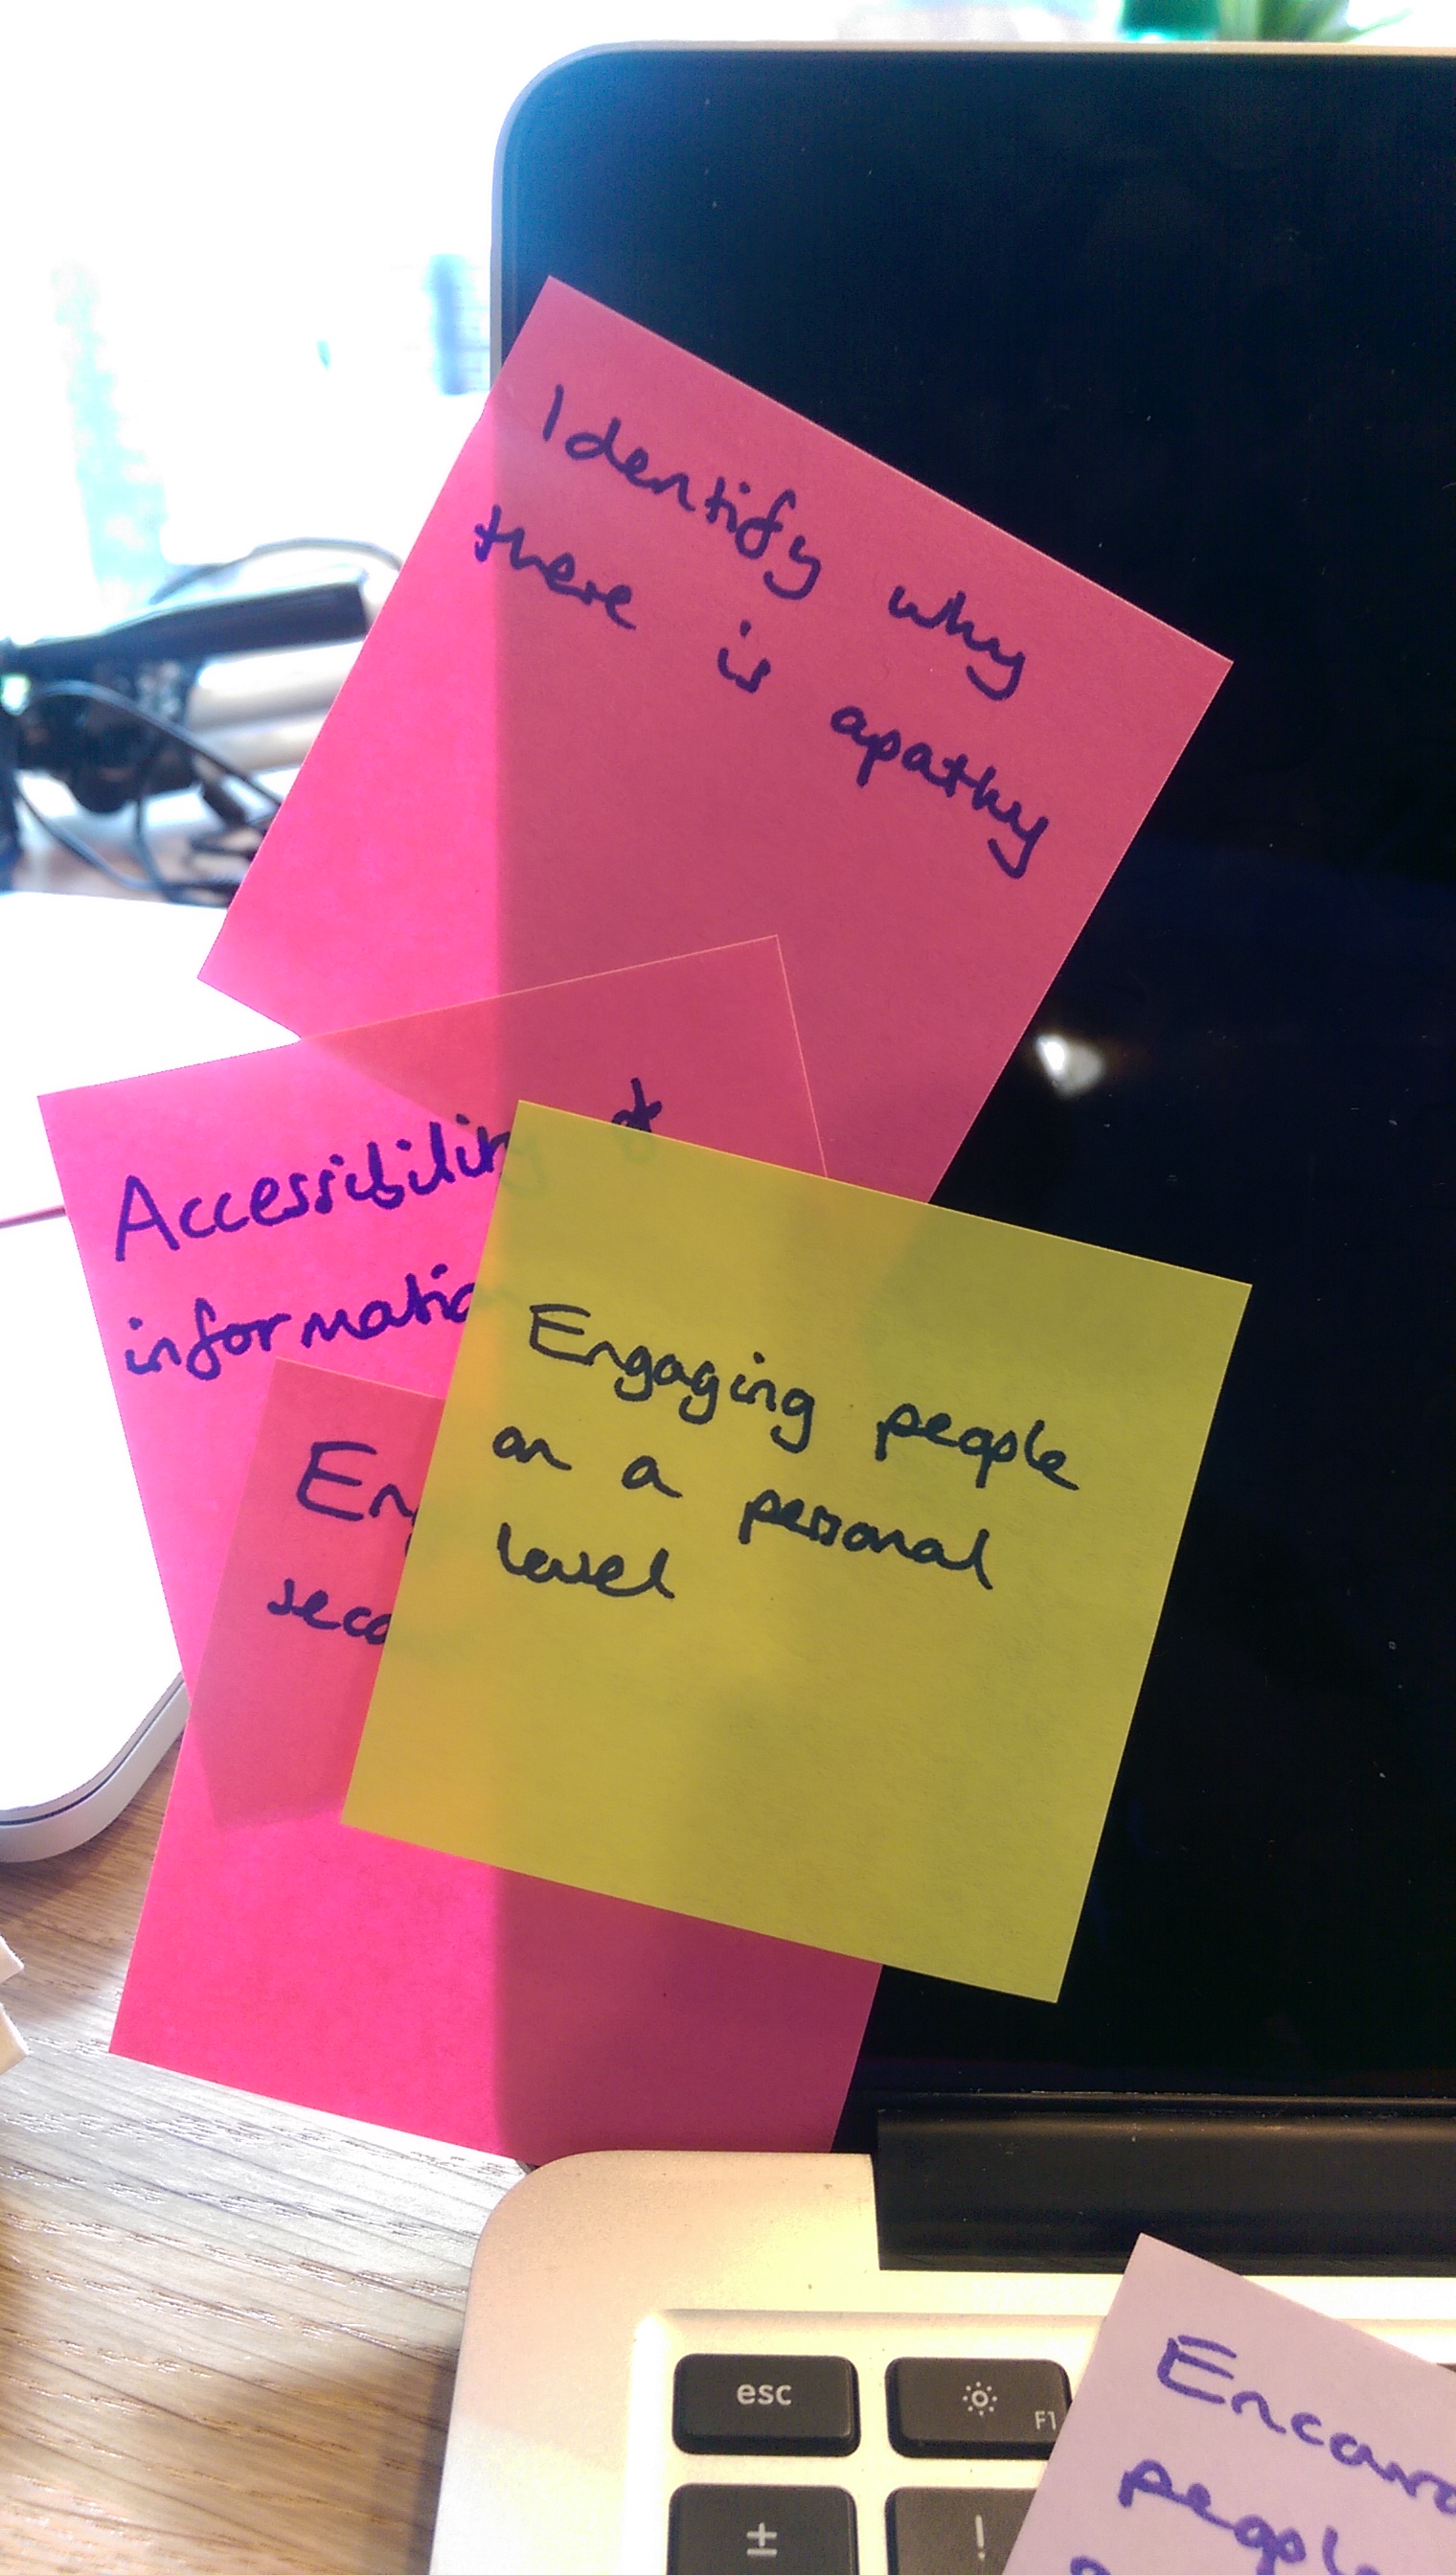 Identify why
there is apathy
Accessibility of
information
Engaging people
on a personal
level
esc
F1
±
!